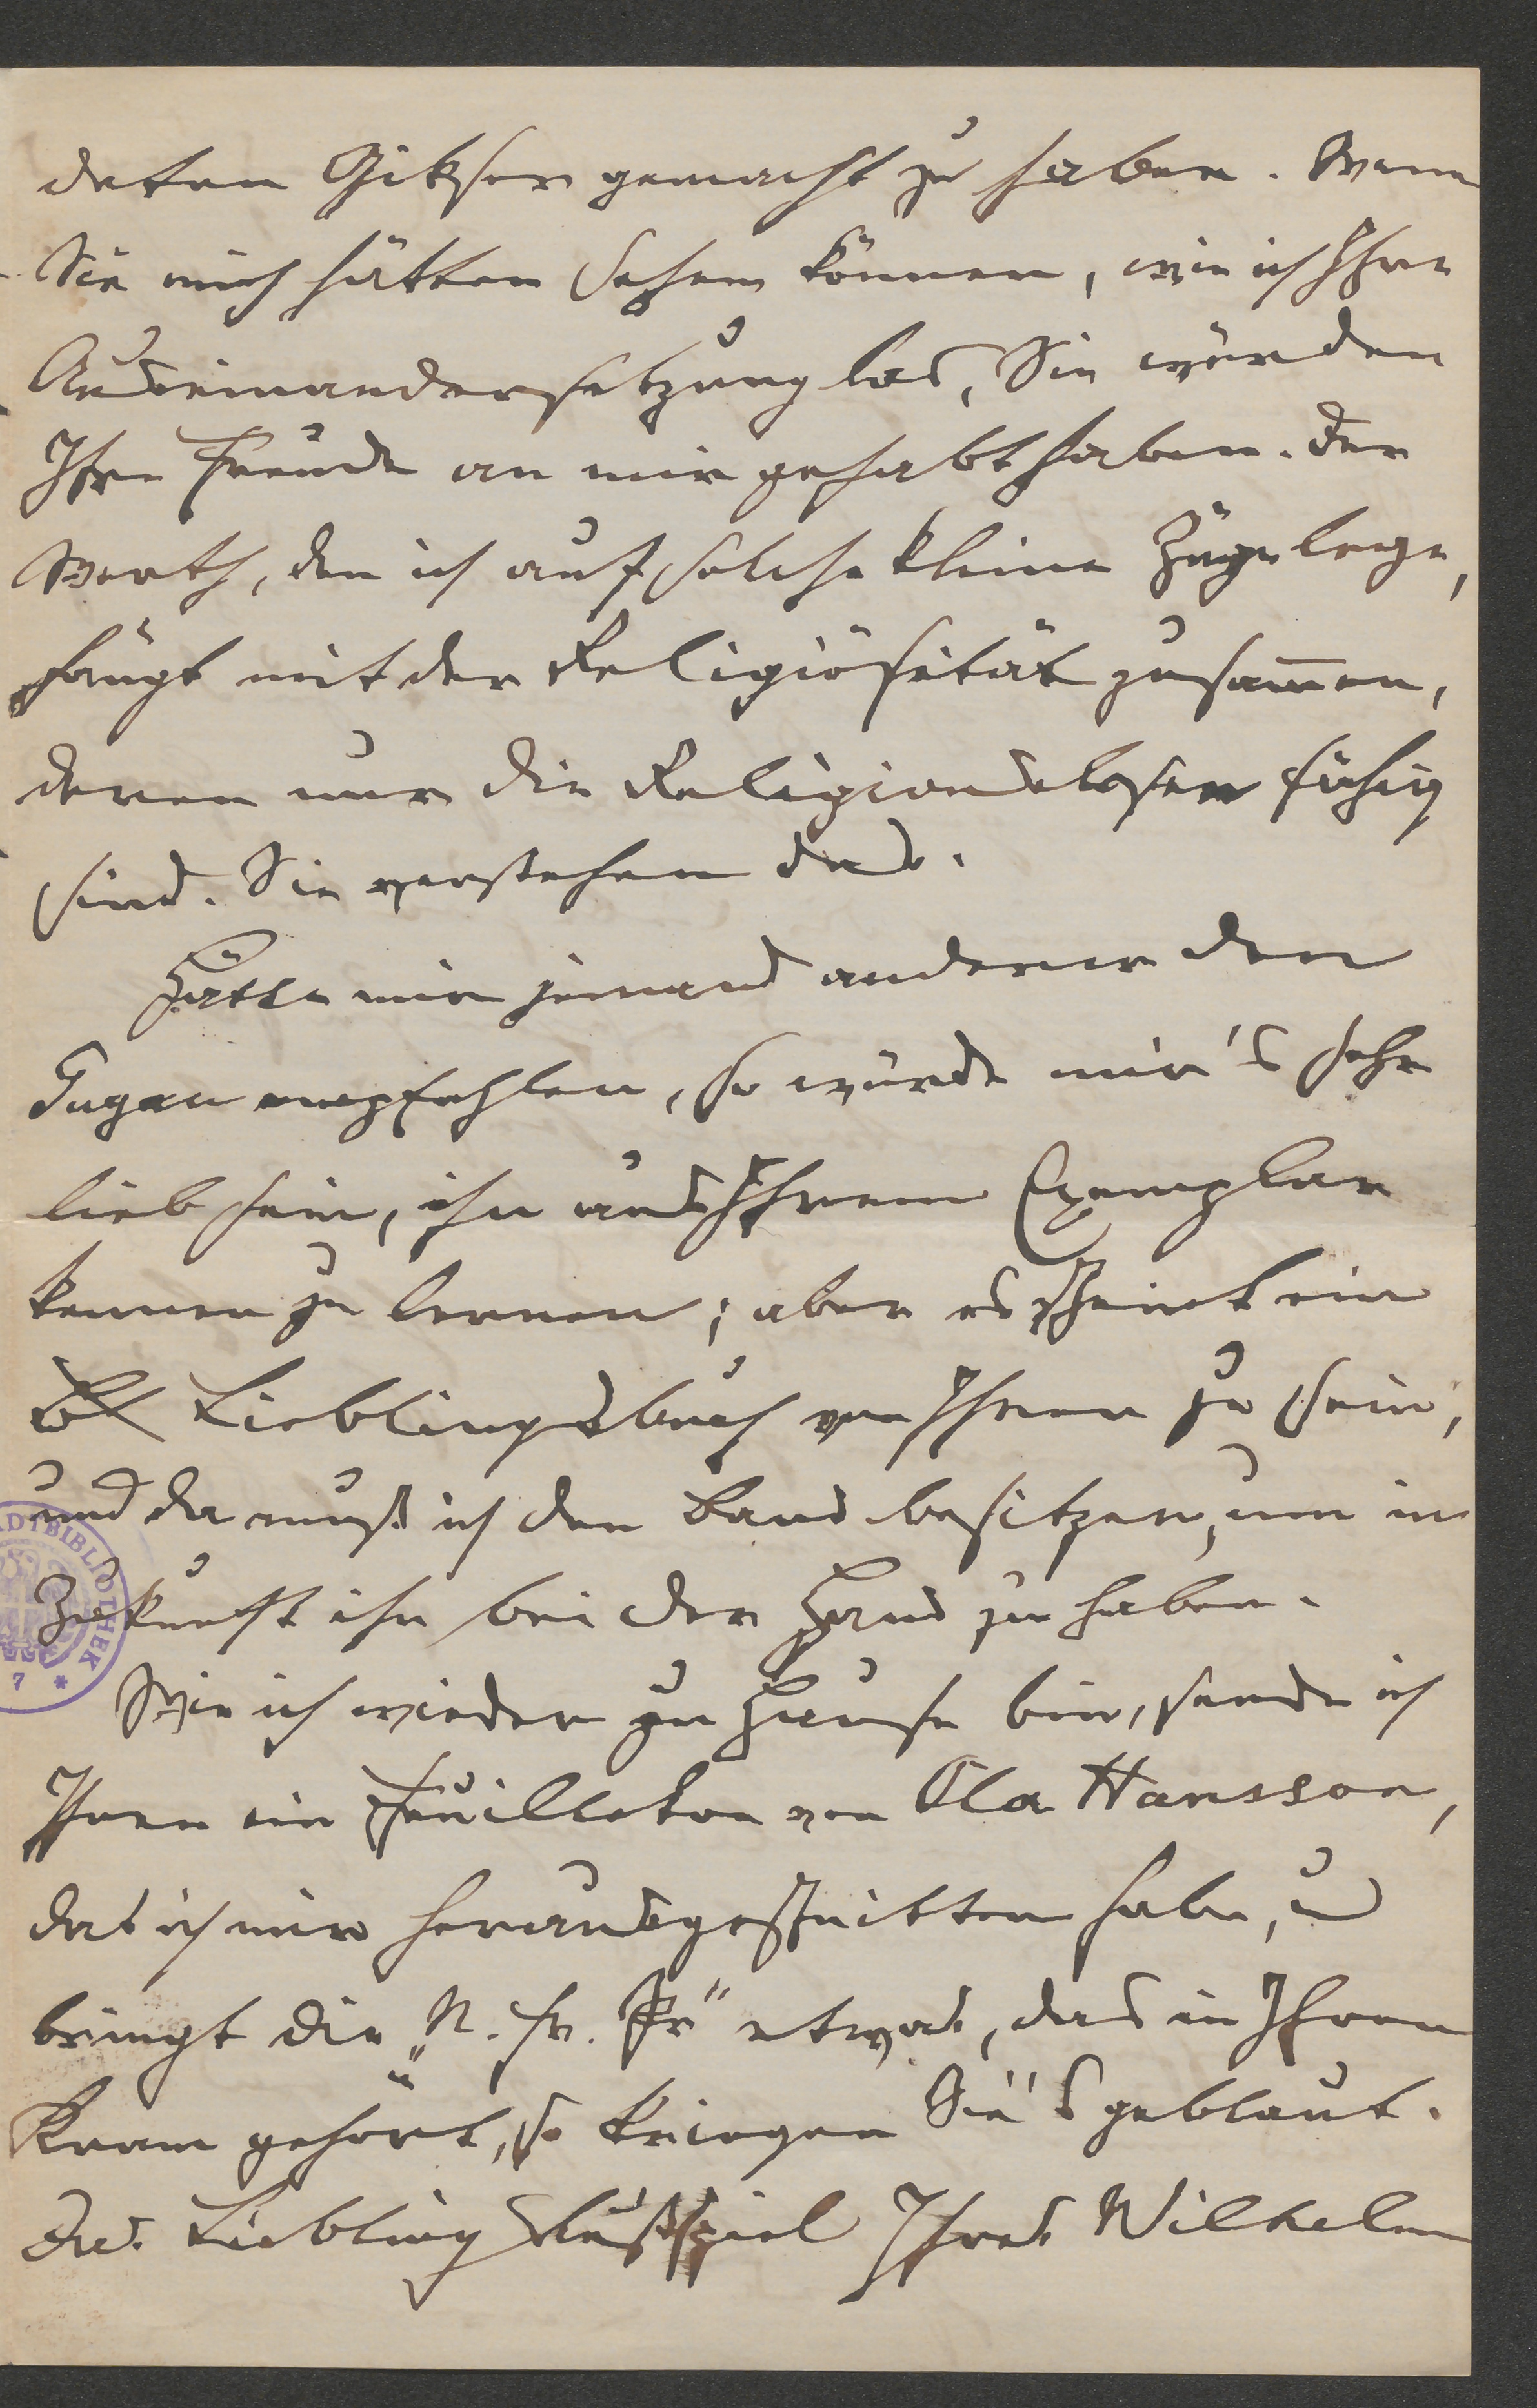 deten Gikser gemacht zu haben. Wenn
Sie mich hätten sehen können, wie ich Ihre
Auseinandersetzung las, Sie würden
Ihre Freude an mir gehabt haben. Der
Werth, den ich auf solche kleine Züge lege,
hängt mit der Religiösität zusam̅en,
deren nur die Religionslosen fähig
sind. Sie verstehen das.
Hätte mir jemand anderer den
empfohlen, so würde mir's sehr
lieb sein, ihn aus Ihrem Exemplar
kennen zu lernen; aber es scheint ein
Lieblingsbuch von Ihnen zu sein,
und da muß ich den Band besitzen, um in
Zukunft ihn bei der Hand zu haben.
Wie ich wieder zu Hause bin, sende ich
Ihnen ein Feuilleton von Ola Hansson,
das ich mir herausgeschnitten habe, u
bringt die „N. Fr. Pr“ etwas, das in Ihren
Kram gehört, so kriegen Sie's geblaut.
Das Lieblingslustspiel Ihres Wilhelm
ADTBIBLIOTHEK
7 *